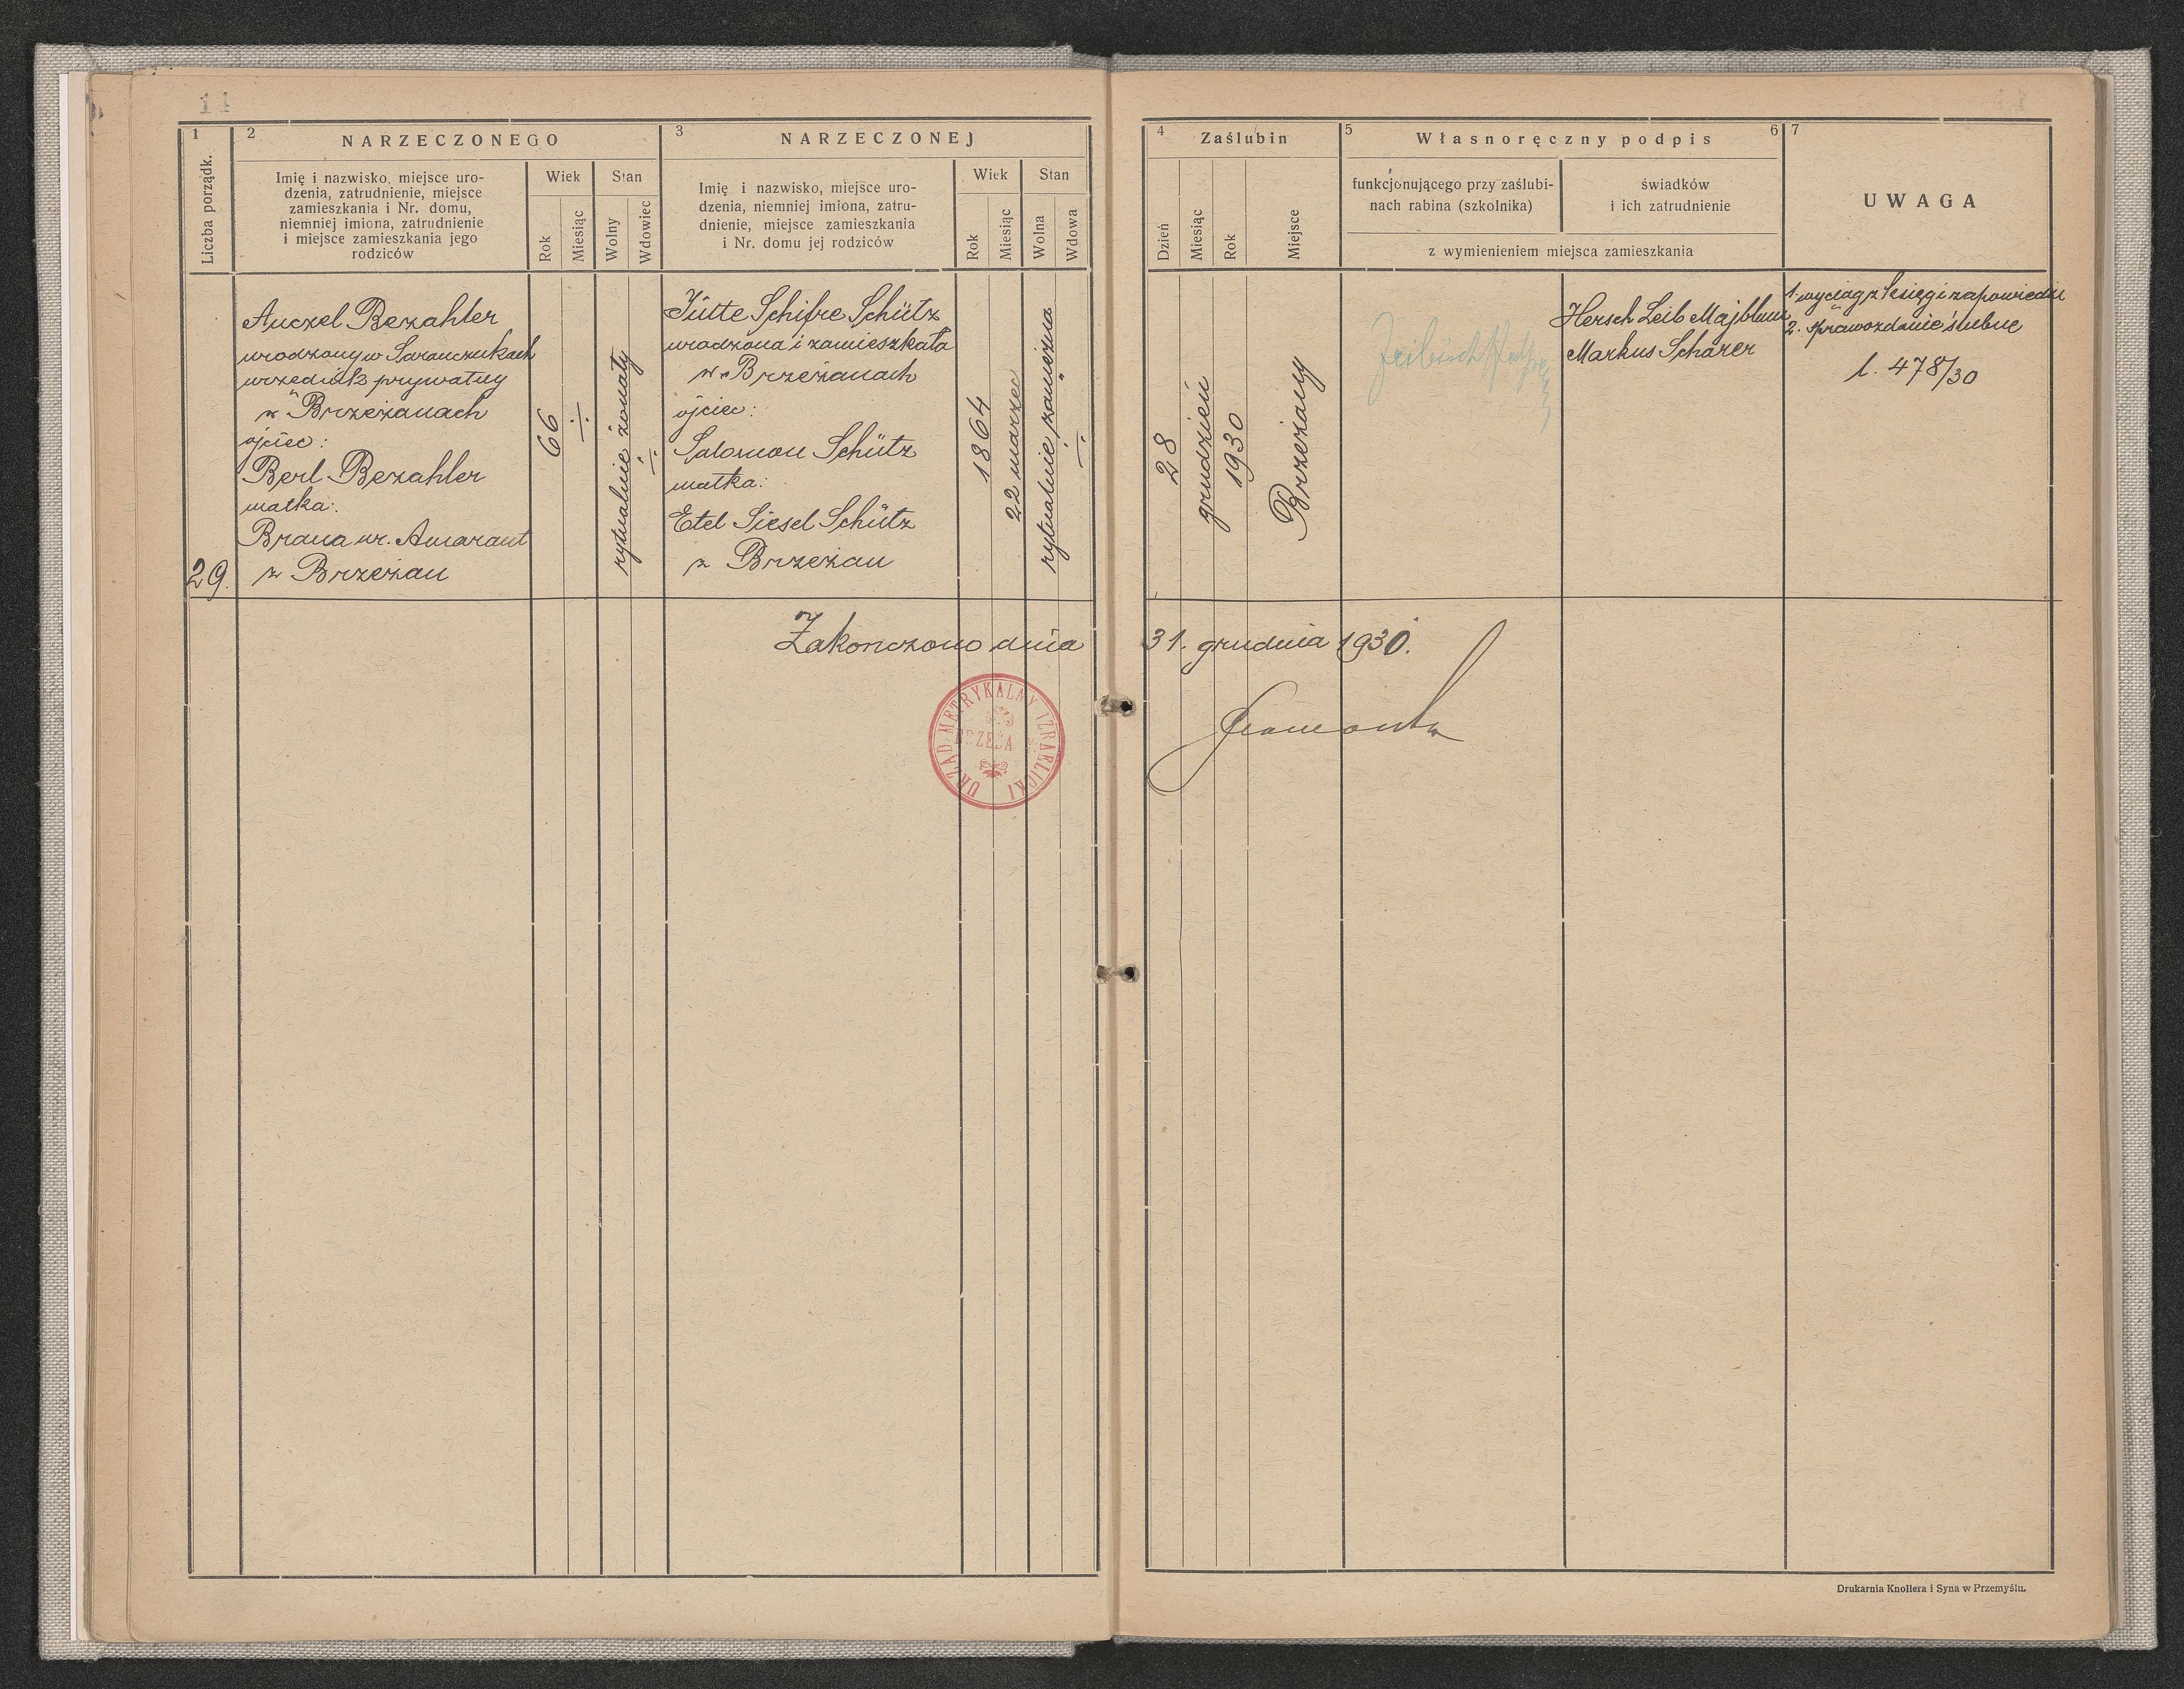 11
1
Liczba porządk.
2
NARZECZONEGO
Imię i nazwisko, miejsce uro-
dzenia, zatrudnienie, miejsce
zamieszkania i Nr. domu,
niemniej imiona, zatrudnienie
i miejsce zamieszkania jego
rodziców
Wiek
Rok
Miesiąc
Stan
Wolny
Wdowiec
3
NARZECZONEJ
Imię i nazwisko, miejsce uro-
dzenia, niemniej imiona, zatru-
dnienie, miejsce zamieszkania
i Nr. domu jej rodziców
Wiek
Rok
Miesiąc
Stan
Wolna
Wdowa
4
Zaślubin
Dzień
Miesiąc
Rok
Miejsce
5
Własnoręczny podpis
6
funkcjonującego przy zaślubi-
nach rabina (szkolnika)
świadków
i ich zatrudnienie
z wymienieniem miejsca zamieszkania
7
UWAGA
29.
Anczel Bezahler
urodzony w Saranczukach
urzędnik prywatny
w Brzeżanach
ojciec:
Berl Bezahler
matka:
Brana ur. Amarant
z Brzeżan
66
÷
rytualnie żonaty
÷
Jütte Schifre Schütz
urodzona i zamieszkała
w Brzeżanach
ojciec:
Salomon Schütz
matka:
Etel Siesel Schütz
z Brzeżan
1864
22 marzec
rytualnie zamężna
÷
28
grudzień
1930
Brzeżany
Hersch Leib Majblum
Markus Scharer
1. wyciąg z księgi zapowiedzi
2. sprawozdanie ślubne
l. 478/30
Zakonczono dnia 31. grudnia 1930.
URZĄD METRYKALNY IZRAELICKI
Drukarnia Knollera i Syna w Przemyślu.